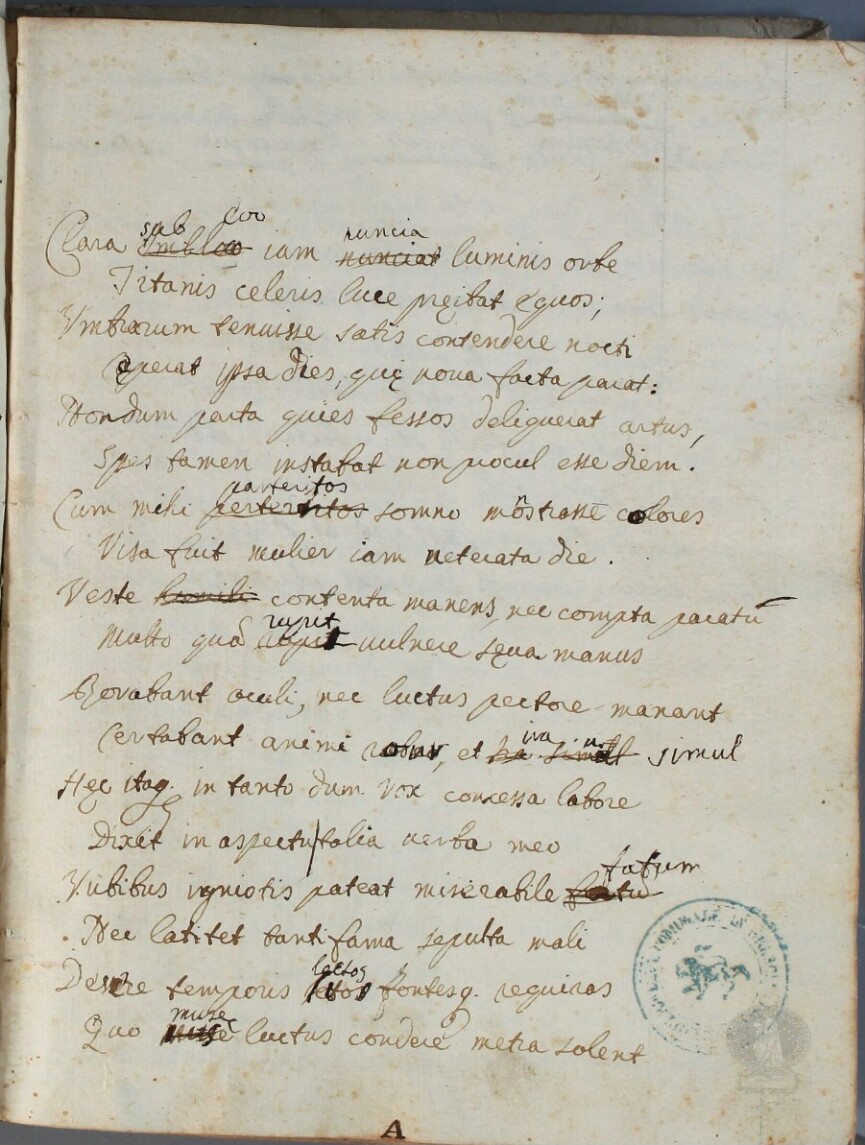 Clara sub Eoo iam nuncia luminis orbe
Titanis celeris luce pręibat equos;
Vmbrarum tenuisse satis contendere nocti
Ceperat ipsa dies, quę noua facta parat:
Nondum parta quies fessos deliquerat artus,
Spes tamen instabat non procul esse diem.
Cum mihi somno mōstrasse colores
Visa fuit mulier iam ueterata die.
Veste humili contenta manens, nec compta paratū
Multo quā rupit uulnere sęua manus
Rorabant oculi, nec luctus pectore manant
Certabant animi robur, et ira simul
Hęc itaq. in tanto dum vox concessa labore
Dixit in aspectu talia uerba meo
Vrbibus igniotis pateat miserabile fatum
Nec latitet tanti fama sepulta mali
temporis lectos fontesq. requiras
Quo musę luctus condere metra solent
A